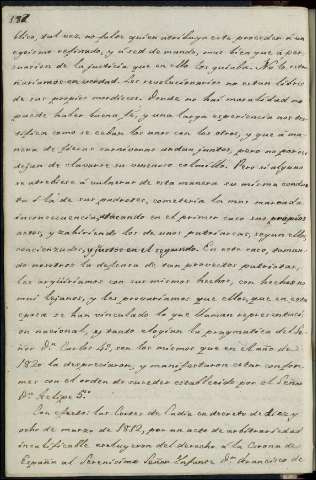 blico, tal vez, no falte quien atribuya este proceder á un
egoismo refinado, y á sed de mando, mas bien que á per-
suacion de la justicia que en ello los guiaba. No lo estra-
ñariamos en verdad. Los revolucionarios no estan libres
de sus propios mordiscos. Donde no hai moralidad no
puede haber buena fé, y una larga esperiencia nos tes-
tifica como se ceban los unos con los otros, y que á ma-
nera de fieras carnivoras andan juntos, pero no por eso
dejan de clavarse su venenoso colmillo. Pero si alguno
se atrebiese á vulnerar de esta manera su misma conduc-
ta ó la de sus padrotes, cometeria la mas marcada
inconsecuencia, atacando en el primer caso sus propios
actos, y zahiriendo los de unos patriarcas, segun ellos,
concienzudos, y justos en el segundo. En este caso, toman-
do nosotros la defensa de tan provectos patriotas,
les arguiriamos con sus mismos hechos, con hechos no
mui lejanos, y les provariamos que ellos, que en esta
epoca se han vinculado lo que llaman representa-
cion nacional, y tanto elogian la pragmatica del Se-
ñor Dn. Carlos 4º, son los mismos que en el año de
1820 la despreciaron, y manifestaron estar confor-
mes con el orden de suceder establecido por el Señor
Dn. Felipe 5º
Con efecto: las Cortes de Cadiz en decreto de diez y
ocho de marzo de 1812, por un acto de arbitrariedad
incalificable excluyeron del derecho á la Corona de
España al Serenisimo Señor Infante Dn. Francisco de